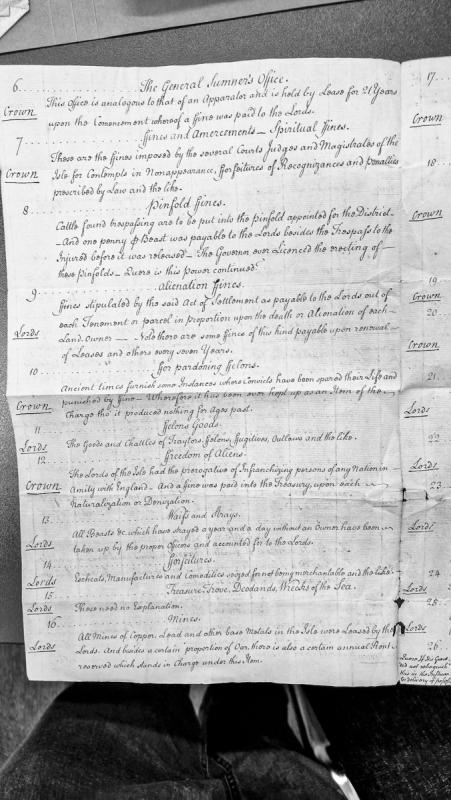 6. The General Sumner's Office.
This Office is analogous to that of an Apparator and is held by Lease for 21 Years
Crown
upon the Comencment whereof a ffine was paid to the Lords.
7. ffines and Amercements — Spiritual ffines.
These are the ffines imposed by the several Courts Judges and Magistrates of the
Crown
Isle for Contempts in Nonappearance, fforfeitures of Recognizances and Penalties
prescribed by Law and the like.
8 Pinfold ffines.
Cattle found trespassing are to be put into the Pinfold appointed for the District
And one penny P Beast was payable to the Lords besides the Trespass to the
Injured before it was released — The Governor ever Licenced the erecting of
these Pinfolds — Quere is this power continued?
9. Alienation ffines.
ffines stipulated by the said Act of Settlement as payable to the Lords out of
each Tenement or parcel in proportion upon the death or Alienation of each
Lords
Land Owner — Note there are some ffines of this kind payable upon renewal
of Leases and others every seven Years.
10 ffor pardoning ffelons.
Ancient times furnish some Instances where Convicts have been spared their Life and
Crown
punished by ffine — Wherefore it has been ever kept up as an Item of the
Charge tho' it produced nothing for Ages past.
11 ffelons Goods.
Lords
The Goods and Chattles of Traytors, ffelons, ffugitives, Outlaws and the like.
12. ffreedom of Aliens.
The Lords of the Isle had the prerogative of Infranchizing persons of any Nation in
Crown
Amity with England. And a ffine was paid into the Treasury, upon each
Naturalization or Denization.
13. Waifs and Strays.
All Beasts &c. which have strayed a year and a day without an Owner have been
Lords
taken up by the proper Officers and accounted for to the Lords.
14. fforfeitures.
Lords
Escheats, Manufactures and Comodities seized for not being merchantable and the like.
15 Treasure Trove, Deodands, Wrecks of the Sea.
Lords
These need no Explanation.
16. Mines.
All Mines of Copper, Lead and other base Metals in the Isle were Leased by the
Lords
Lords. And besides a certain proportion of Oar, there is also a certain annual Rent
reserved which stands in Charge under this Item.
17.
Crown
18
Crown
19
Crown
20
Crown
21.
Lords
22
Lords
23
Lords
24
Lords
25
Lords
26